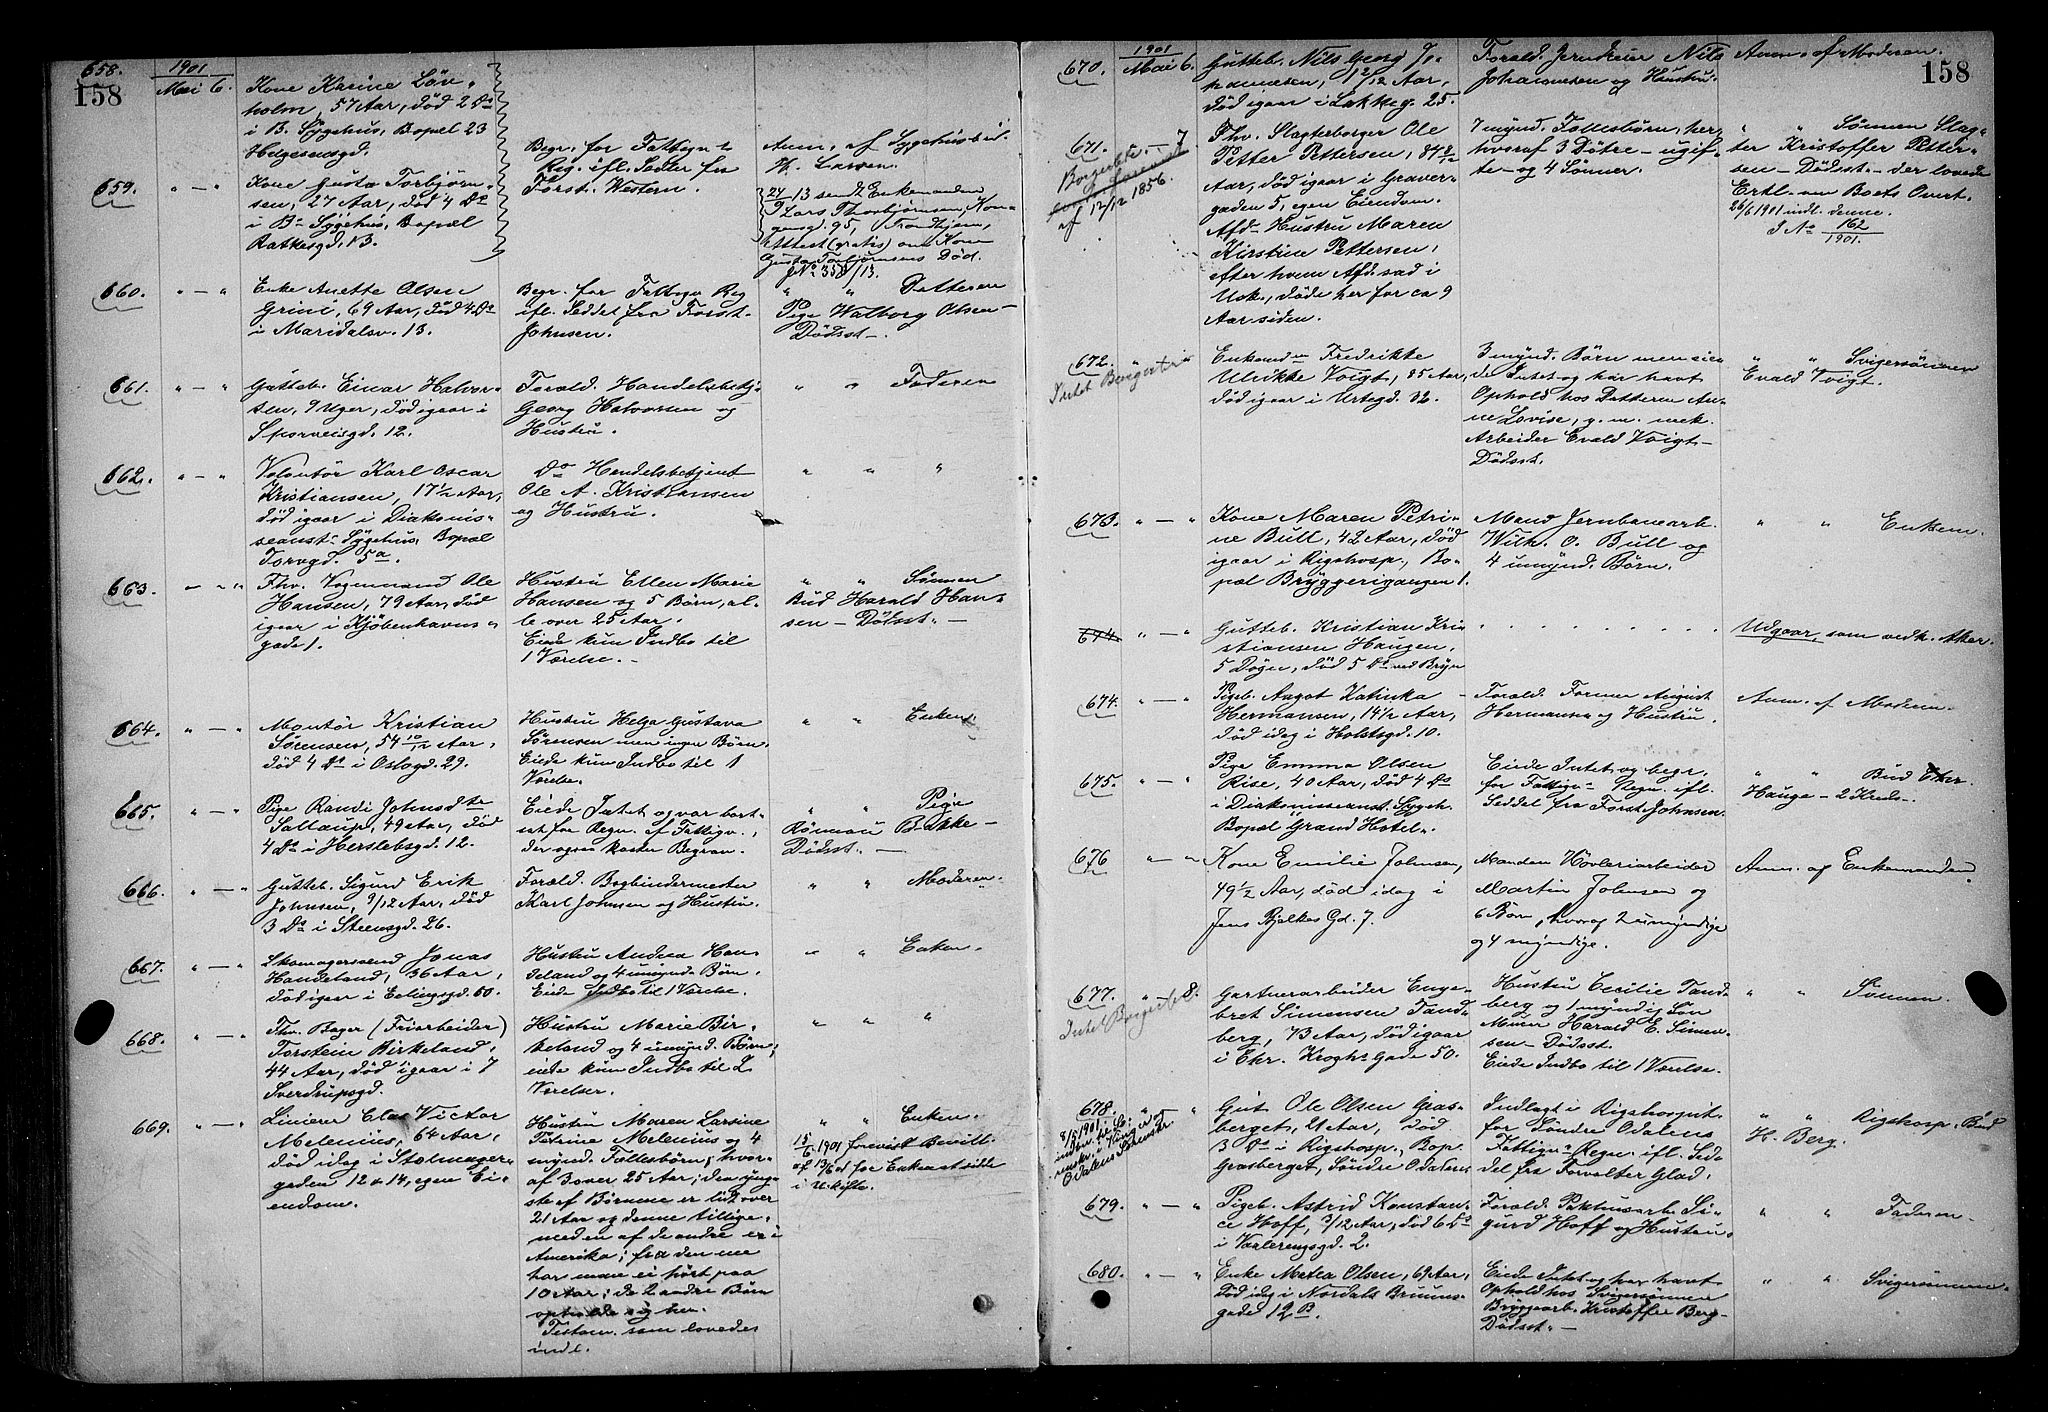 158
658.
1901
Mai 6.
Kone Karine Løv-
holm, 57 Aar, død 2 Ds
i B. Sygehus, Bopæl 23
Helgesensgd.
659.
" — "
Kone Gusta Torbjørn-
sen, 27 Aar, død 4 Ds
i Bs Sygehus, Bopæl
Rathkesgd. 13.
Begr. for Fattigv.s
Reg. ifl. Sedler fra
Forst. Western.
Anm. af Sygehusbud
H. Larsen.
24/9 13 sendt Enkemanden
Lars Thorbjørnsen, Kon-
gensgd. 95, Trondhjem,
Attest (gratis) om Kone
Gusta Torbjørnsens Død.
J No 358/13.
660.
" — "
Enke Anette Olsen
Grini, 69 Aar, død 4 Ds
i Maridalsv. 13.
Begr. for Fattigv. Reg.
ifl. Seddel fra Forst.
Johnsen.
" " Datteren
Pige Walborg Olsen —
Dødsst. —
661.
" — "
Gutteb. Einar Halvor-
sen, 9 Uger, død igaar i
Sporveisgd. 12.
Foræld. Handelsbetj.
Georg Halvorsen og
Hustru.
" " Faderen
662.
" — "
Volontør Karl Oscar
Kristiansen, 17 1/2 Aar,
død igaar i Diakonis-
seanst. Sygehus, Bopæl
Torvgd. 5a.
Do Handelsbetjent
Ole A. Kristiansen
og Hustru.
" " "
663.
" — "
Fhv. Vognmand Ole
Hansen, 79 Aar, død
igaar i Kjøbenhavns-
gade 1.
Hustru Ellen Marie
Hansen og 5 Børn, al-
le over 25 Aar.
Eiede kun Indbo til
1 Værelse. —
" " Sønnen
Bud Harald Han-
sen — Dødsst. —
664.
" — "
Montør Kristian
Sørensen, 54 10/12 Aar,
død 4 Ds i Oslogd. 29.
Hustru Helga Gustava
Sørensen men ingen Børn.
Eiede kun Indbo til 1
Værelse.
" " Enken.
665.
" — "
Pige Randi Johnsdtr
Saltaup, 49 Aar, død
4 Ds i Herslebsgd. 12.
Eiede Intet og var bort-
sat for Regn. af Fattigv.,
der ogsaa koster Begrav.
" " Pige
Rønnau Bakke —
Dødsst. —
666.
" — "
Gutteb. Sigurd Erik
Johnsen, 9/12 Aar, død
3 Ds i Steensgd. 26.
Foræld. Bogbindermester
Karl Johnsen og Hustru.
" " Moderen.
667.
" — "
Skomagersvend Jonas
Handeland, 36 Aar,
død igaar i Eilingsgd. 60.
Hustru Andrea Han-
deland og 4 umynd. Børn.
Eiede Indbo til 1 Værelse.
" " Enken.
668.
" — "
Fhv. Bager (Friarbeider)
Torstein Birkeland,
44 Aar, død igaar i 7
Sverdrupsgd.
Hustru Marie Bir-
keland og 4 umynd. Børn;
eiede kun Indbo til 2
Værelser.
" " "
669.
" — "
Linierer Claes Victor
Melenius, 64 Aar,
død idag i Stolmager-
gaden 12 & 14, egen Ei-
endom.
Hustru Maren Larsine
Petrine Melenius og 4
mynd. Fællesbørn; hvor-
af 3 over 25 Aar; den yng-
ste af Børnene er lidt over
21 Aar og denne tillige-
med en af de andre er i
Amerika; fra den ene
har man ei hørt paa
10 Aar; de 2 andre Børn
opholde sig her.
Testam. som lovedes
indl.
" " Enken.
15/6 1901 forevist Bevill.
af 13/6 01 for Enken at sidde
i Uskifte.
158
670.
1901
Mai 6.
Gutteb. Nils Georg Jo-
hannesen, 1 2/12 Aar,
død igaar i Lakkeg. 25.
Foræld. Jerndreier Nils
Johannesen og Hustru.
Anm. af Moderen.
671.
" — 7
Borgerbr.
af 12/12 1856.
Fhv. Slagterborger Ole
Petter Pettersen, 84 8/12
Aar, død igaar i Graver-
gaden 5, egen Eiendom.
Afd. Hustru Maren
Kirstine Pettersen,
efter hvem Afd. sad i
Usk., døde her for ca 9
Aar siden.
7 mynd. Fællesbørn, her-
hvoraf 3 Døtre — ugif-
te — og 4 Sønner.
" " Sønnen Slag-
ter Kristoffer Petter-
sen — Dødsst. — der lovede
Erkl. om Boets Omst.
26/6 1901 indl. denne.
J No 162/1901.
672.
" "
Intet Borgerbr.
Enkemdm Fredrikke
Ulrikke Voigt, 85 Aar,
død igaar i Urtegd. 32.
3 mynd. Børn men eie-
de Intet og har havt
Ophold hos Datteren An-
ne Lovise, g. m. mek.
Arbeider Evald Voigt —
Dødsst.
" " Svigersønnen
Evald Voigt.
673.
" — "
Kone Maren Petri-
ne Bull, 42 Aar, død
igaar i Rigshosp., Bo-
pæl Bryggerigangen 1.
Mand Jernbanearb.
Wilh. O. Bull og
4 umynd. Børn.
" " Enkem.
674.
" — "
Gutteb. Kristian Kri-
stiansen Haugen,
5 Døgn, død 5 Ds ved Bryn
. . . . . . . . . .
Udgaar, som vedk. Aker.
674.
" — "
Pigeb. Aagot Katinka
Hermansen, 14 1/2 Aar,
død idag i Holstsgd. 10.
Foræld. Former August
Hermansen og Hustru.
Anm. af Moderen.
675.
" — "
Pige Emma Olsen
Rise, 40 Aar, død 4 Ds
i Diakonisseanst. Sygeh.
Bopæl "Grand Hotel".
Eiede Intet og begr.
for Fattigv. Regn. ifl.
Seddel fra Forst. Johnsen.
" " Bud Chr.
Hauge — 2 Kreds —
676
" — "
Kone Emilie Johnsen,
49 1/2 Aar, død idag i
Jens Bjelkes Gd. 7.
Manden Høvleriarbeider
Martin Johnsen og
6 Børn, hvoraf 2 umyndige
og 4 myndige.
Anm. af Enkemanden.
677.
" — 8.
Intet Borgerbr.
Gartnerarbeider Enge-
bret Simensen Tand-
berg, 73 Aar, død igaar
i Chr. Kroghs Gade 50.
Hustru Cecilie Tand-
berg og 1 myndig Søn
Murer Harald E. Simen-
sen — Dødsst.
Eiede Indbo til 1 Værelse.
" " Sønnen.
678.
" — "
8/5 1901
Odalens
Gut Ole Olsen Gras-
berget, 21 Aar, død
3 Ds i Rigshosp., Bop.
Grasberget, Søndre Odalen.
Indlagt i Rigshospit.
for Søndre Odalens
Fattigv. Regn. ifl. Sed-
del fra Forvalter Glad.
" " Rigshosp. Bud
H. Berg.
679.
" — "
Pigeb. Astrid Konstan-
ce Hoff, 3/12 Aar, død 6 Ds
i Vaalerengsgd. 2.
Foræld. Pakhusarb. Si-
gurd Hoff og Hustru.
" " Faderen —
680.
" — "
Enke Mathea Olsen, 69 Aar,
død idag i Nordals Bruuns-
gade 12 B.
Eiede Intet og har havt
Ophold hos Svigersønnen
Bryggearb. Kristoffer Berg —
Dødsst. —
" " Svigersønnen.